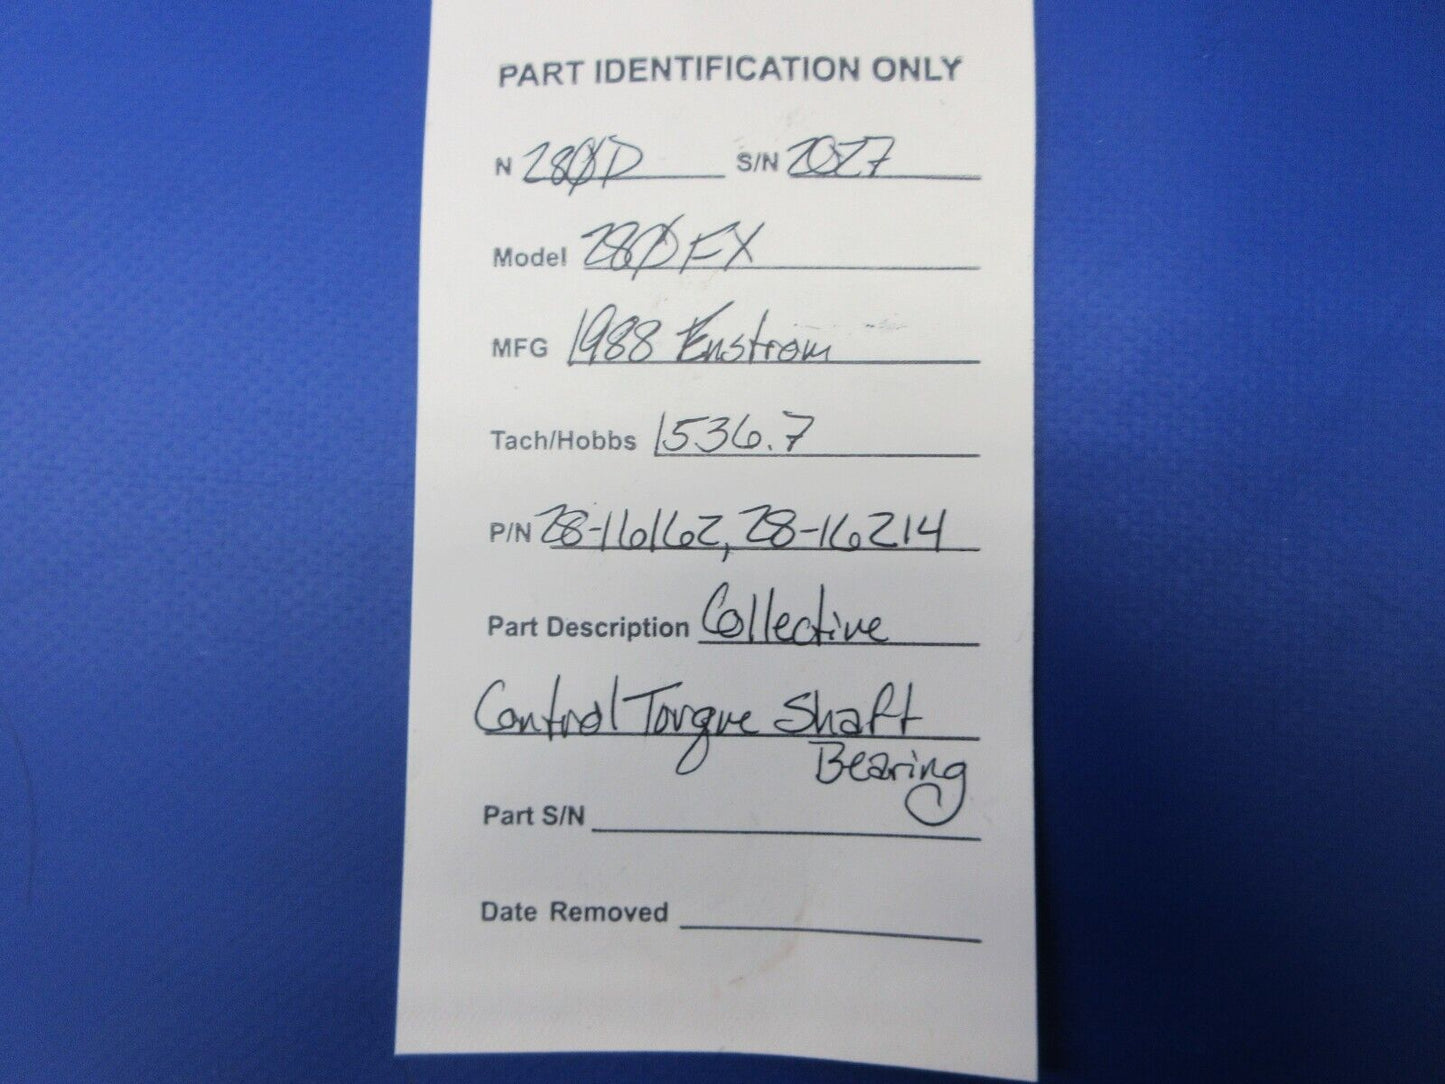 PART IDENTIFICATION ONLY
N 280D S/N 2027
Model 280FX
MFG 1988 Enstrom
Tach/Hobbs 1536.7
P/N 28-16162, 28-16214
Part Description Collective
Control Torque Shaft
Bearing
Part S/N
Date Removed